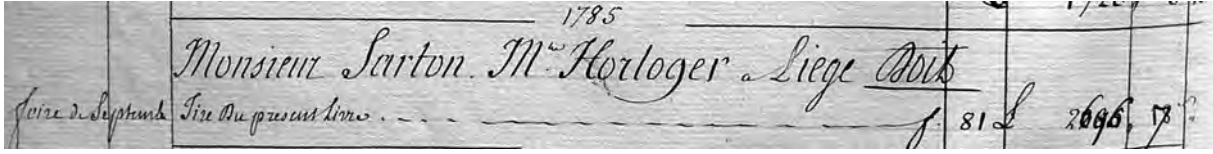 1785
Monsieur Sarton. Md. Horloger a Liege Doit
foire de Septembre Tire Du present Livre . . . . f. 81 £